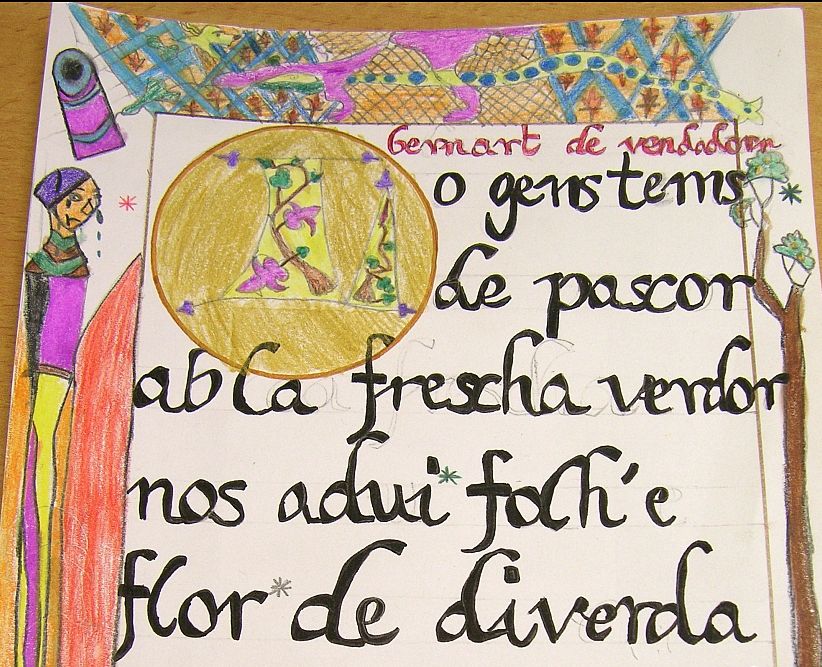 bernart de vendadorn
Lo gens tems
de pascor
ab la frescha verdor
nos adui folh'e
flor de diverda